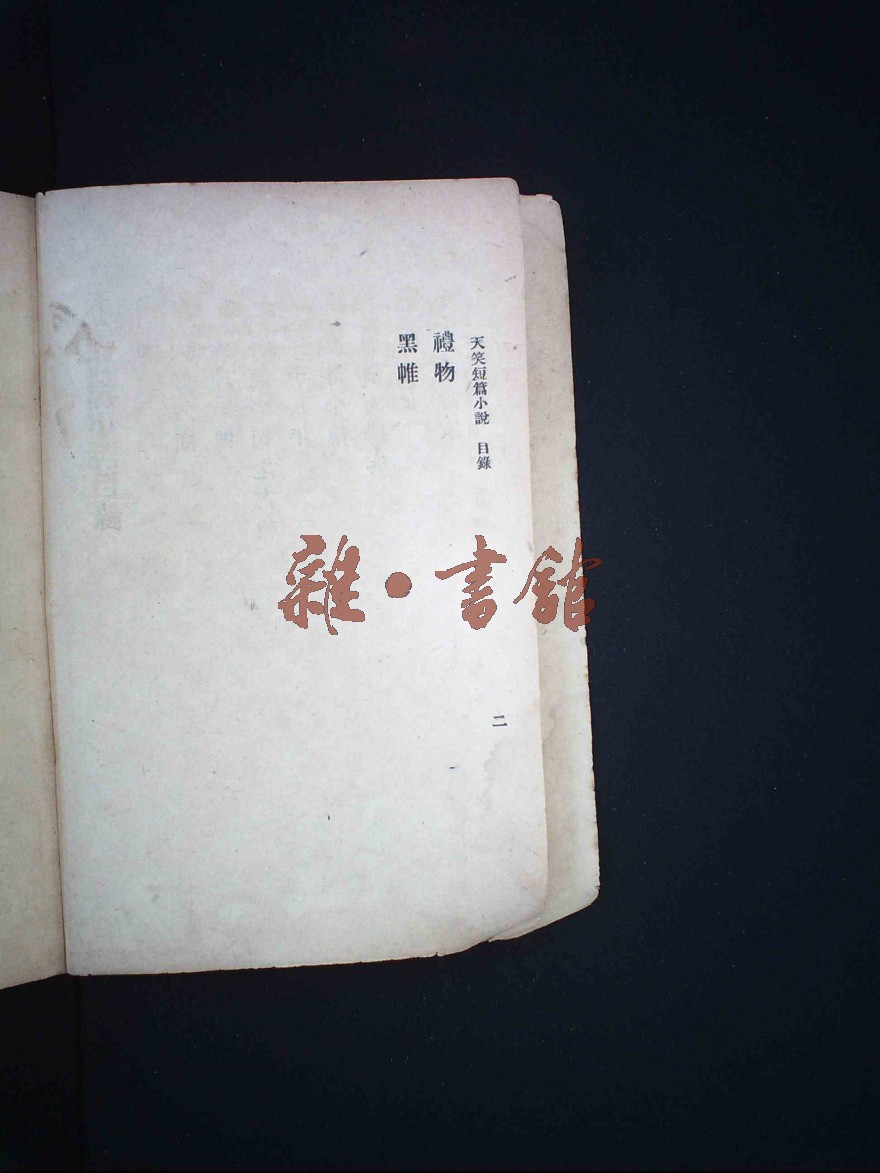 天笑短篇小說 目錄
禮物
黑帷
二
雜·書館